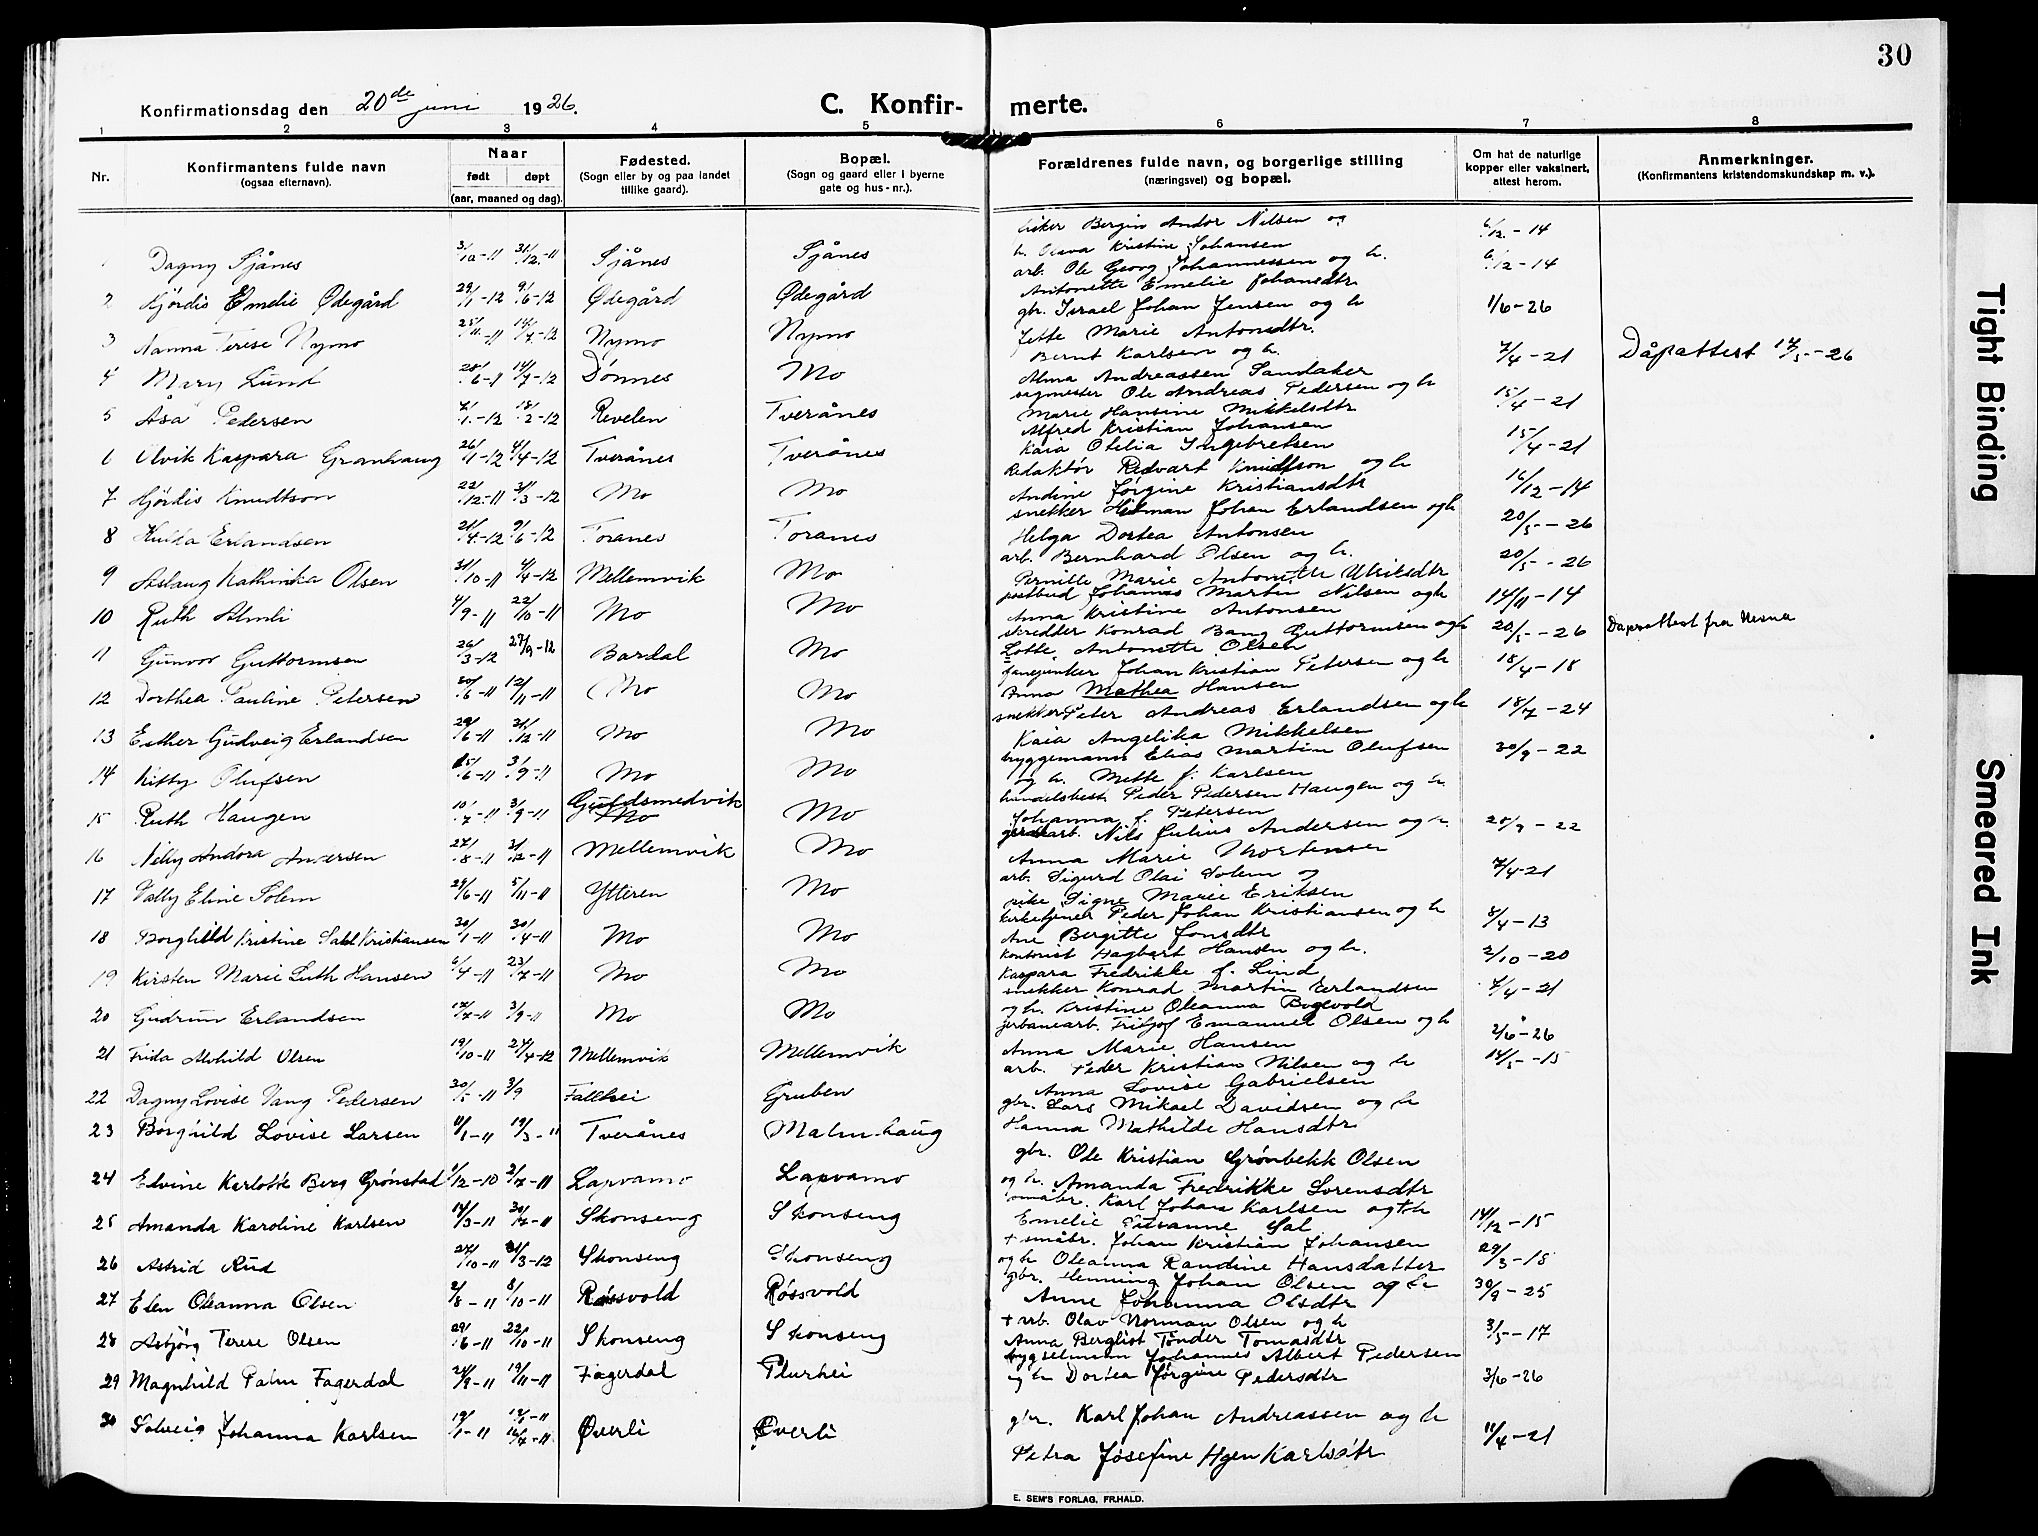 30
Konfirmationsdag den 20de juni 1926.
C. Konfirmerte.
1 2 3 4 5 6 7 8
Nr.
Konfirmantens fulde navn
(ogsaa efternavn).
Naar
født døpt
(aar, maaned og dag).
Fødested.
(Sogn eller by og paa landet
tillike gaard).
Bopæl.
(Sogn og gaard eller i byerne
gate og hus-nr.).
Forældrenes fulde navn, og borgerlige stilling
(næringsvei) og bopæl.
Om hat de naturlige
kopper eller vaksinert,
attest herom.
Anmerkninger.
(Konfirmantens kristendomskundskap m. v.).
1 Dagny Sjånes 3/10-11 31/12-11 Sjånes Sjånes fisker Bergin Andor Nilsen og
h. Olava Kristine Johansen 6/12-14
2 Hjördis Emelie Ødegård 29/1-12 9/6-12 Ødegård Ødegård arb. Ole Georg Johannessen og h.
Antonette Emelie Johansdtr 6/12-14
3 Nanna Terese Nymo 25/11-11 14/7-12 Nymo Nymo gbr. Israel Johan Jensen og h
Jette Marie Antonsdtr. 1/6-26
4 Mary Lund 28/6-11 14/7-12 Dønnes Mo Bernt Karlsen og h.
Alma Andreassen Sandaker 7/4-21 Dåpattest 14/5-26
5 Åsa Pedersen 7/1-12 18/2-12 Revelen Tverånes sagmester Ole Andreas Pedersen og h
Marie Hansine Mikkelsdtr 15/4-21
6 Olvik Kaspara Granhaug 26/1-12 4/4-12 Tverånes Tverånes Alfred Kristian Johansen
Kaia Otelia Ingebretsen 15/4-21
7 Hjördis Knudtson 22/12-11 31/3-12 Mo Mo Redaktör Redvart Knudtson og h
Andine Jørgine Kristiansdtr 16/12-14
8 Hulda Erlandsen 21/4-12 9/6-12 Toranes Toranes snekker Hilman Johan Erlandsen og h
Helga Dortea Antonsen 20/5-26
9 Aslaug Kathinka Olsen 31/10-11 4/4-12 Mellemvik Mo arb. Bernhard Olsen og h.
Pernille Marie Antonette Ulriksdtr 20/5-26
10 Ruth Almli 4/9-11 22/10-11 Mo Mo postbud Johannes Martin Nilsen og h
Anna Kristine Antonsen 14/11-14
11 Gunvor Guttormsen 26/3-12 27/9-12 Bardal Mo skredder Konrad Bang Guttormsen og h
Lotte Antonette Olsen 20/5-26 Dåpsattest fra Nesna
12 Dorthea Pauline Petersen 30/6-11 12/11-11 Mo Mo fanejunker Johan Kristian Petersen og h
Anna Mathea Hansen 18/4-18
13 Esther Gudveig Erlandsen 29/6-11 31/12-11 Mo Mo snekker Peter Andreas Erlandsen og h
Kaia Angelika Mikkelsen 18/7-24
14 Kitty Olufsen 25/6-11 3/9-11 Mo Mo bryggemann Elias Martin Olufsen
og h. Mette f. Karlsen 30/9-22
15 Ruth Haugen 10/7-11 3/9-11 Guldsmedvik Mo Mo handelsbest. Peder Pedersen Haugen og h.
Johanna f. Petersen 20/9-22
16 Nelly Andora Andersen 27/8-11 31/12-11 Mellemvik Mo arb. Nils Julius Andersen og h.
Anna Marie Mortensen
17 Vally Eline Solem 29/6-11 5/11-11 Ytteren Mo arb. Sigurd Olai Solem og
pike Signe Marie Eriksen 7/4-21
18 Borghild Kristine Dahl Kristiansen 30/1-11 30/4-11 Mo Mo kirketjener Peder Johan Kristiansen og h
Ane Bergitte Jonsdtr 8/4-13
19 Kirsten Marie Luth Hansen 6/4-11 23/7-11 Mo Mo kontorist Hagbart Hansen og h.
Kaspara Fredrikke f. Lind 2/10-20
20 Gudrun Erlandsen 17/7-11 3/9-11 Mo Mo snekker Konrad Martin Erlandsen
og h. Kristine Oleanna Bogevold 7/4-21
21 Frida Alvhild Olsen 19/10-11 24/4-12 Mellemvik Mellemvik jerbanearb. Fritjof Emanuel Olsen og h
Anna Marie Hansen 2/6-26
22 Dagny Lovise Vang Pedersen 20/5-11 3/9 Fallhei Gruben arb. Peder Kristian Nilsen og h
Anna Lovise Gabrielsen 14/5-15
23 Borghild Lovise Larsen 11/1-11 19/3-11 Tverånes Malmhaug gbr. Lars Mikael Davidsen og h
Hanna Mathilde Hansdtr
24 Edvine Karlotte Berg Grönstad 1/12-10 2/7-11 Lapvamo Lapvamo gbr. Ole Kristian Grönbekk Olsen
og h. Amanda Fredrikke Sorensdtr
25 Amanda Karoline Karlsen 14/3-11 30/7-11 Skonseng Skonseng småbr. Karl Johan Karlsen og h
Emelie Susanne Sal 14/12-15
26 Astrid Rud 27/10-11 31/3-12 Skonseng Skonseng + småbr. Johan Kristian Johansen
og h Oleanna Randine Hansdatter 29/3-15
27 Elen Oleanna Olsen 2/8-11 8/10-11 Røssvold Røssvold gbr. Henning Johan Olsen og h
Anne Johanna Olsdtr 30/9-25
28 Asbjörg Terese Olsen 29/6-11 22/10-11 Skonseng Skonseng + arb. Olav Norman Olsen og h
Anna Bergliot Tönder Tomasdtr 3/5-17
29 Magnhild Palm Fagerdal 24/9-11 19/11-11 Fagerdal Plurhei bygselmann Johannes Albert Pedersen
og h Dortea Jörgine Pedersdtr 3/6-26
30 Solveig Johanna Karlsen 19/1-11 16/7-11 Øverli Øverli gbr. Karl Johan Andreassen og h
Petra Josefine Hgen Karlsdtr 11/4-21
E. SEM'S FORLAG, FR.HALD.
Tight Binding
Smeared Ink